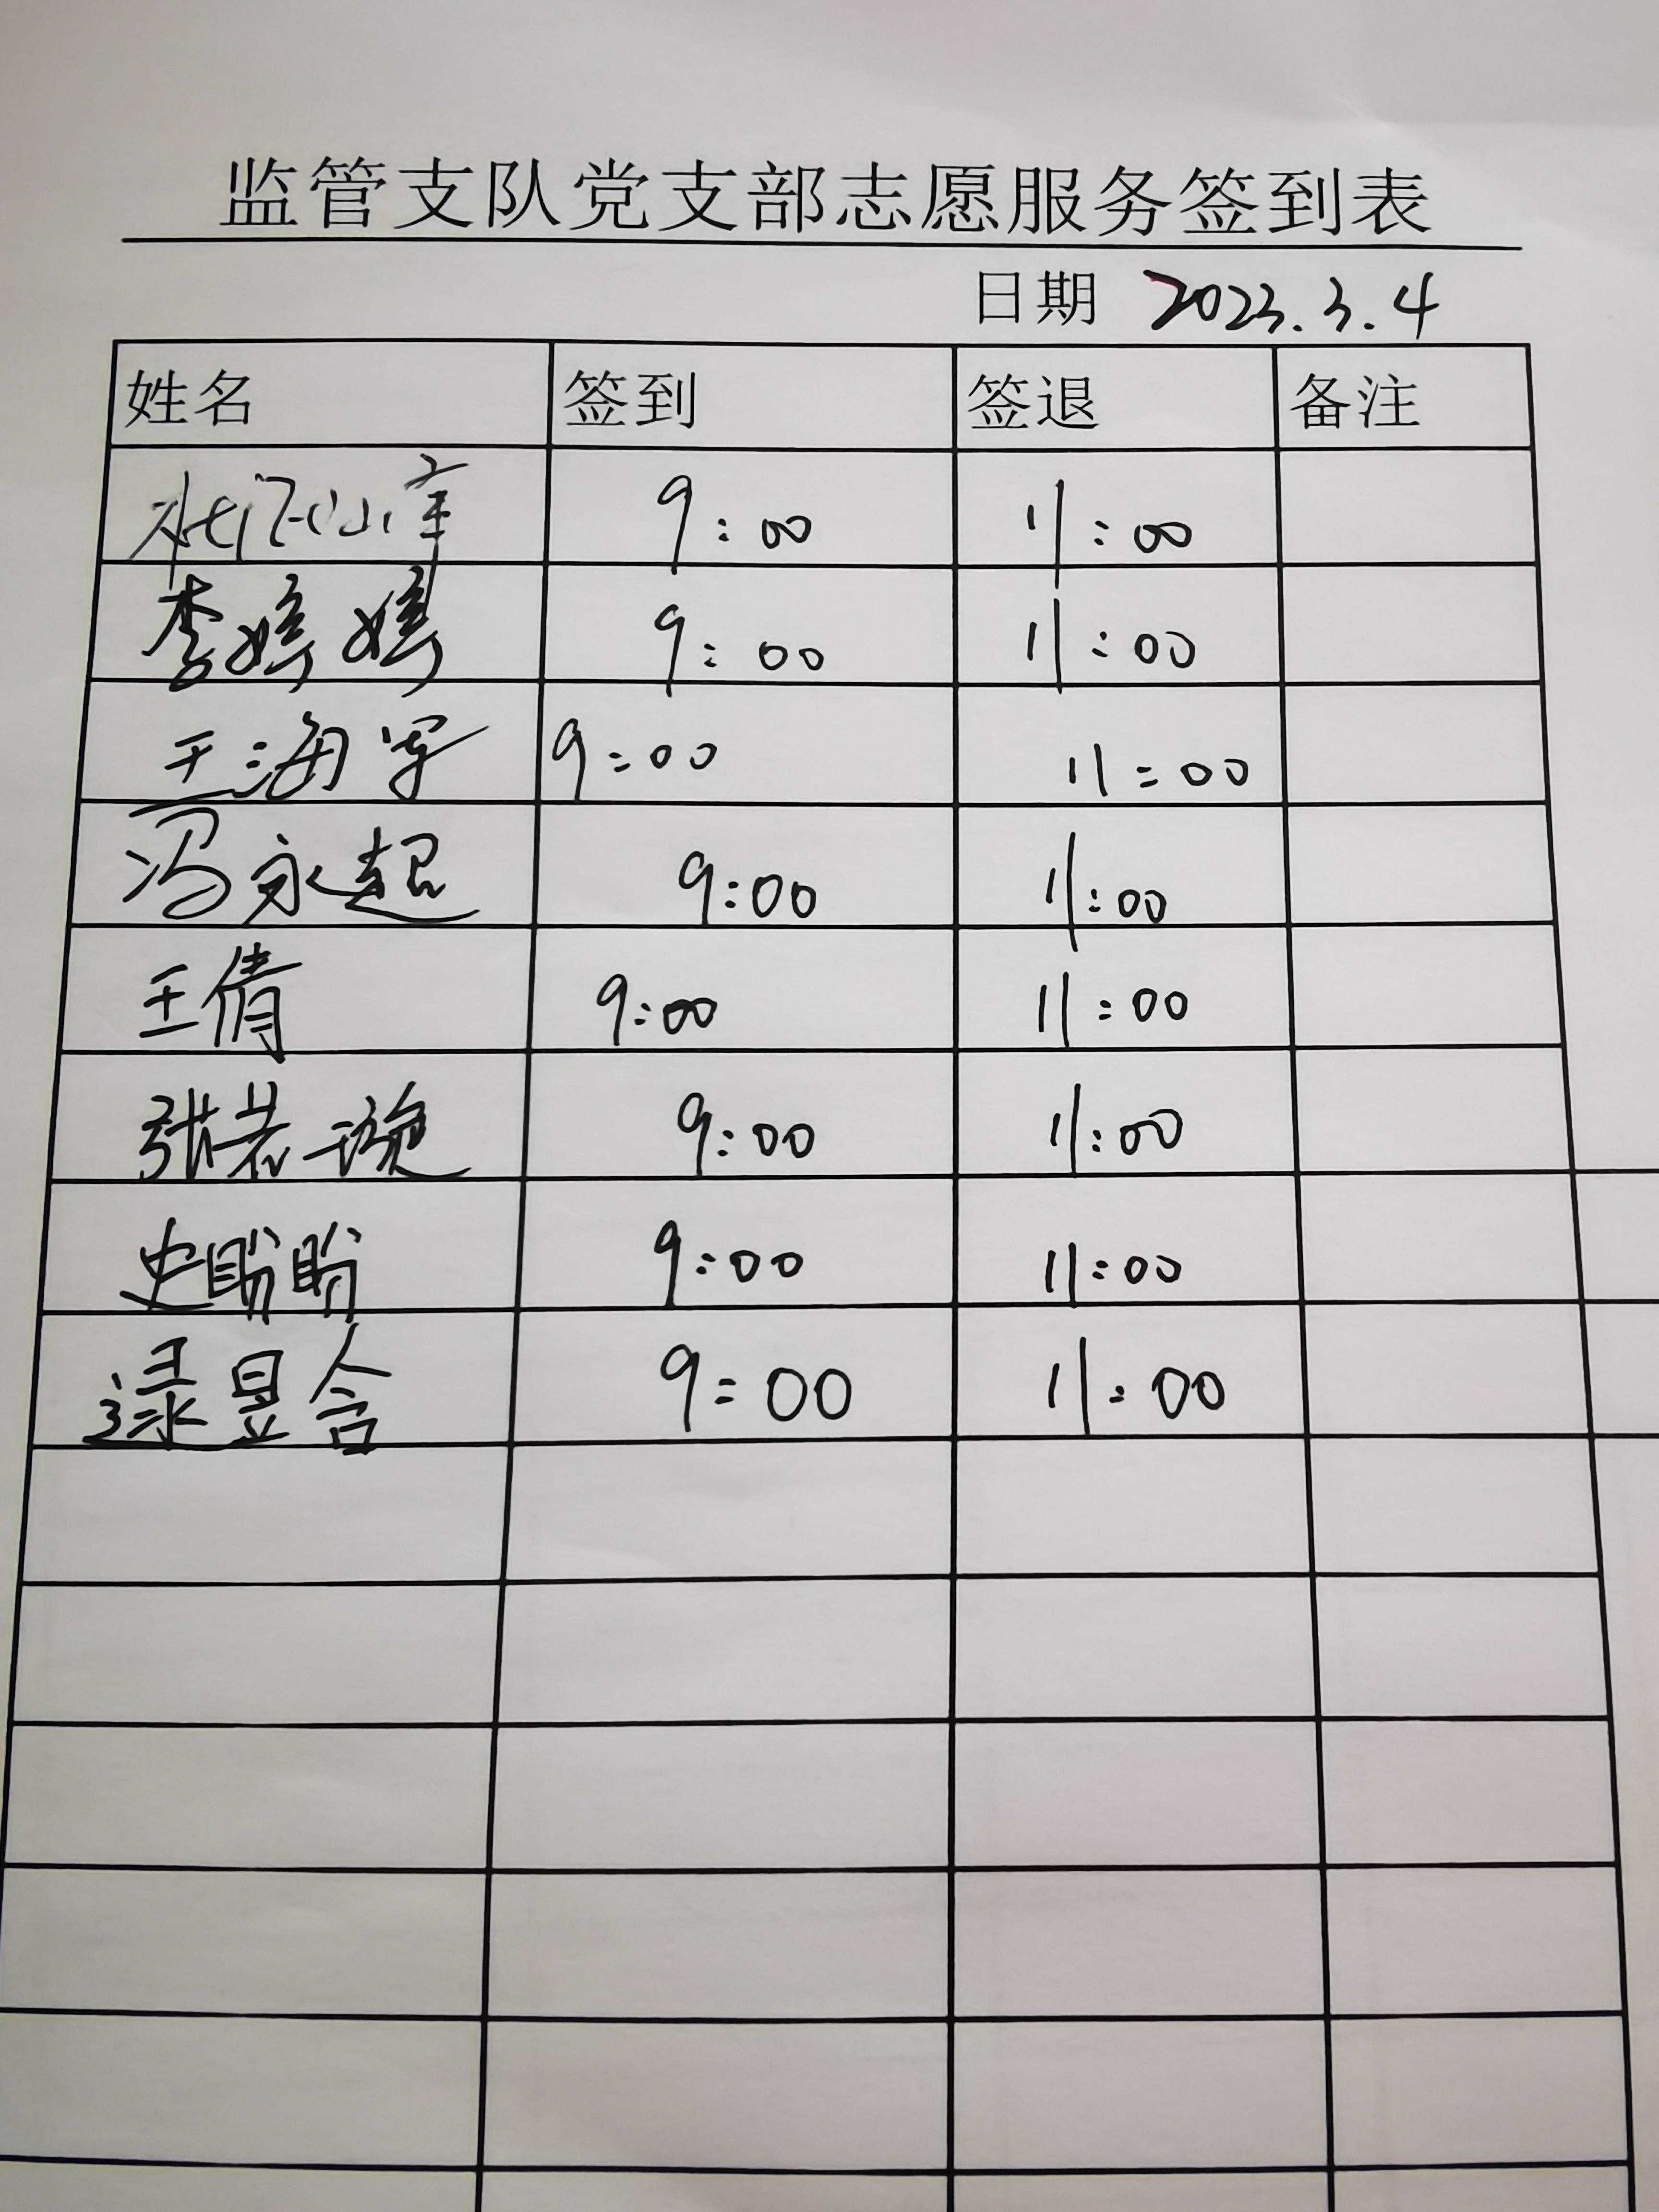 监管支队党支部志愿服务签到表
日期 2023.3.4
姓名 签到 签退 备注
9:00 11:00
李婷婷 9:00 11:00
王海宇 9:00 11:00
冯永超 9:00 11:00
王倩 9:00 11:00
张若璇 9:00 11:00
史盼盼 9:00 11:00
逯昱含 9:00 11:00